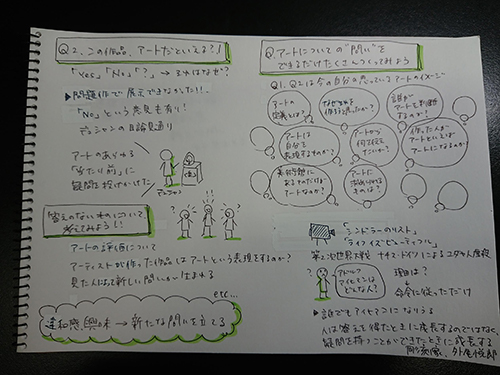 Q2.この作品、アートだといえる?!
「Yes」「No」「?」→ それはなぜ?
▶問題作で展示できなかった!!
「No」という意見も有り!
デュシャンの目論見通り
アートのあらゆる
「当たり前」に
疑問を投げかけた
デュシャン
答えのないものについて
考えてみよう!!
アートの評価について
アーティストが作った作品はアートという表現をするのか?
見た人によって新しい問いが生まれる
etc…
違和感、興味 → 新たな問いを立てる
Q.アートについての"問い"を
できるだけたくさんつくってみよう
Q1、Q2は今の自分の思っているアートのイメージ
アートの
定義とは?
なぜそれを
作ろうと思ったか?
誰が
アートと判断
するのか?
アートは
自分を
表現するものか?
アートから
何を伝え
たいか?
作った人が
アートといえば
アートになるのか?
美術館に
あるものだけが
アートなのか?
アートに
ものは?
「シンドラーのリスト」
「ライフイズビューティフル」
第2次世界大戦 ナチス・ドイツによるユダヤ人虐殺
アドルフ
アイヒマンは
どんな人?
理由は?
命令に従っただけ
▶誰でもアイヒマンになりうる
人は答えを得たときに成長するのではなく
疑問を持つことができたときに成長する